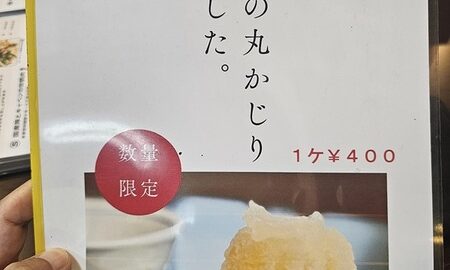 の丸かじり
した。
数量
限定
1ケ¥400